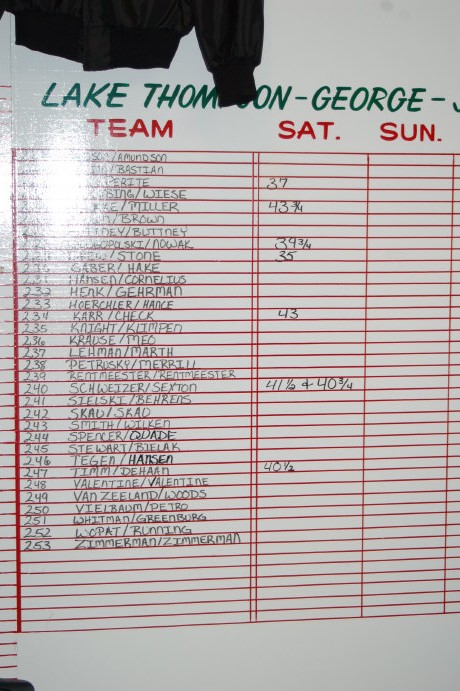 LAKE THOMPSON-GEORGE-
TEAM SAT. SUN.
/AMUNDSON
/BASTIAN
37
/WIESE
/MILLER 43 3/4
/BROWN
/BUTTNEY
/NOWAK 39 3/4
/STONE 35
GABER/HAKE
HANSEN/CORNELIUS
232 HENK/GEHRMAN
233 HOERCHLER/HANCE
234 KARR/CHECK 43
235 KNIGHT/KLIMPEN
236 KRAUSE/MEO
237 LEHMAN/MARTH
238 PETRUSKY/MERRILL
239 RENTMEESTER/RENTMEESTER
240 SCHWEIZER/SEXTON 41 1/2 & 40 3/4
241 SIELSKI/BEHRENS
242 SKAU/SKAU
243 SMITH/WILKEN
244 SPENCER/QUADE
245 STEWART/BIELAK
246 TEGEN/HANSEN
247 TIMM/DEHAAN 40 1/2
248 VALENTINE/VALENTINE
249 VAN ZEELAND/WOODS
250 VIELBAUM/PETRO
251 WHITMAN/GREENBURG
252 WOPAT/RUNNING
253 ZIMMERMAN/ZIMMERMAN